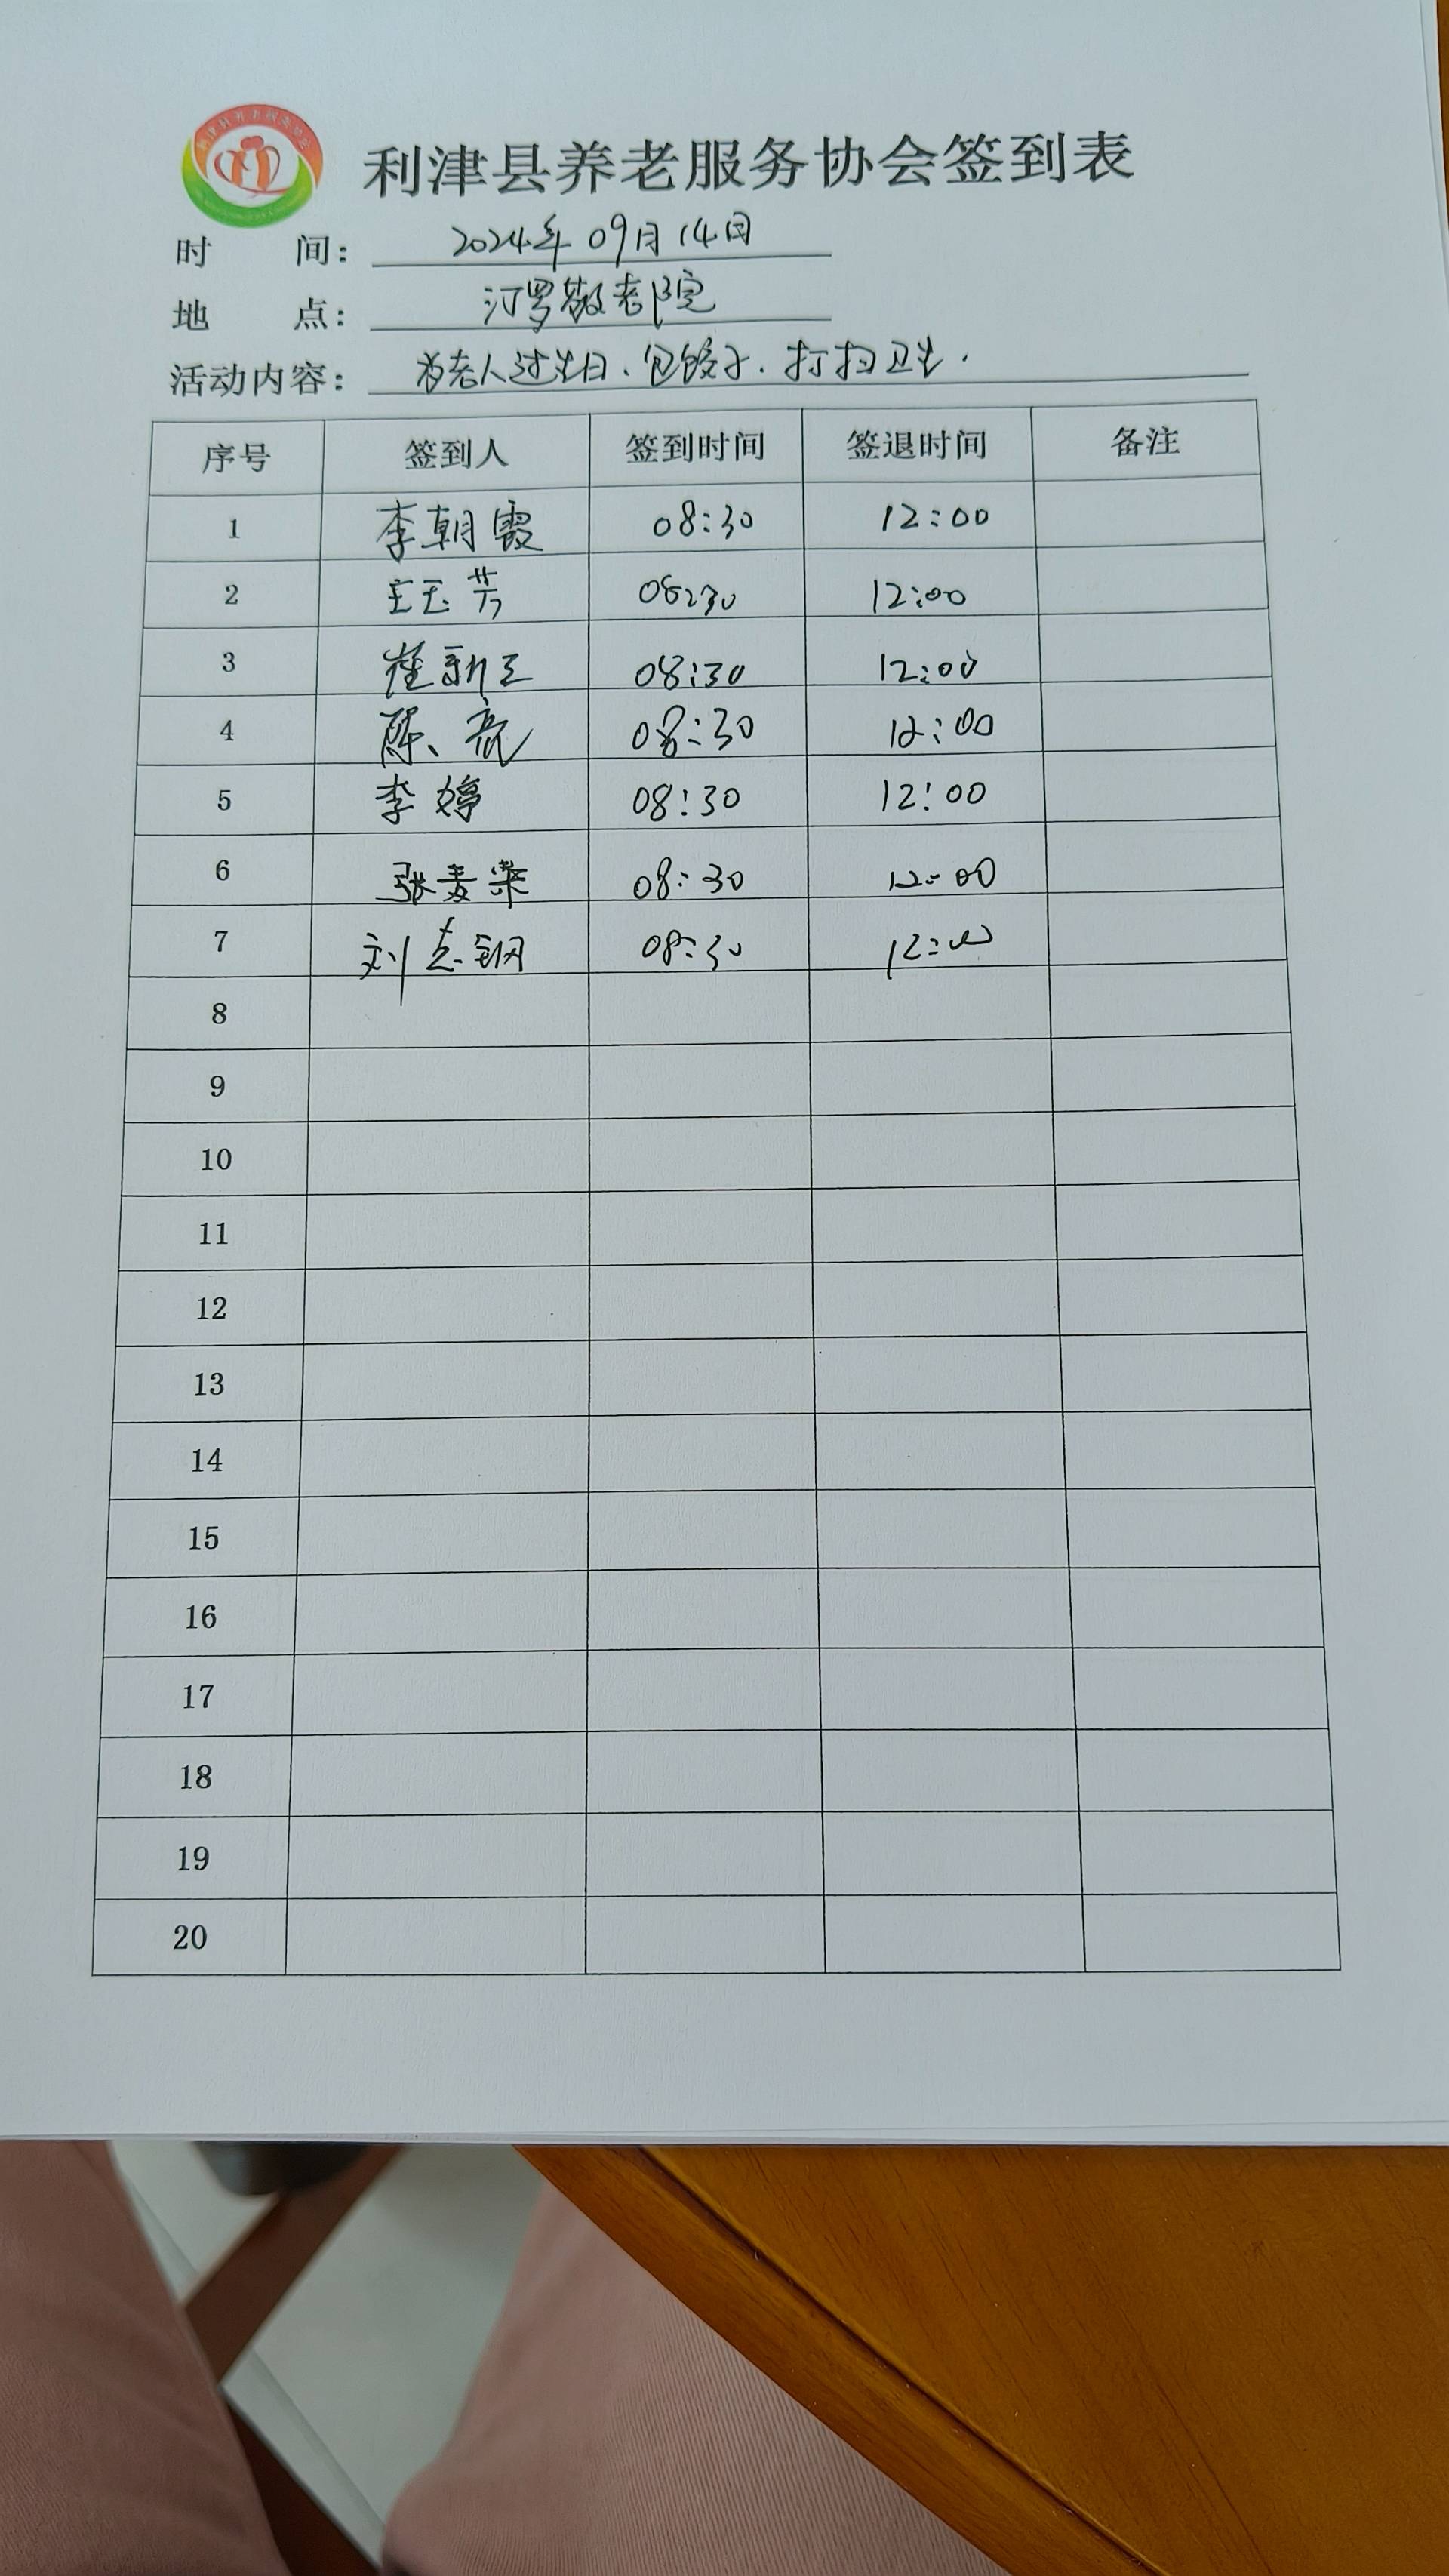 利津县养老服务协会签到表
时 间： 2024年09月14日
地 点： 汀罗敬老院
活动内容： 为老人过生日、包饺子、打扫卫生.
序号 签到人 签到时间 签退时间 备注
1 李朝霞 08:30 12:00
2 王玉芳 08:30 12:00
3 崔新王 08:30 12:00
4 陈亮 08:30 12:00
5 李婷 08:30 12:00
6 张麦荣 08:30 12:00
7 刘志钢 08:30 12:00
8
9
10
11
12
13
14
15
16
17
18
19
20